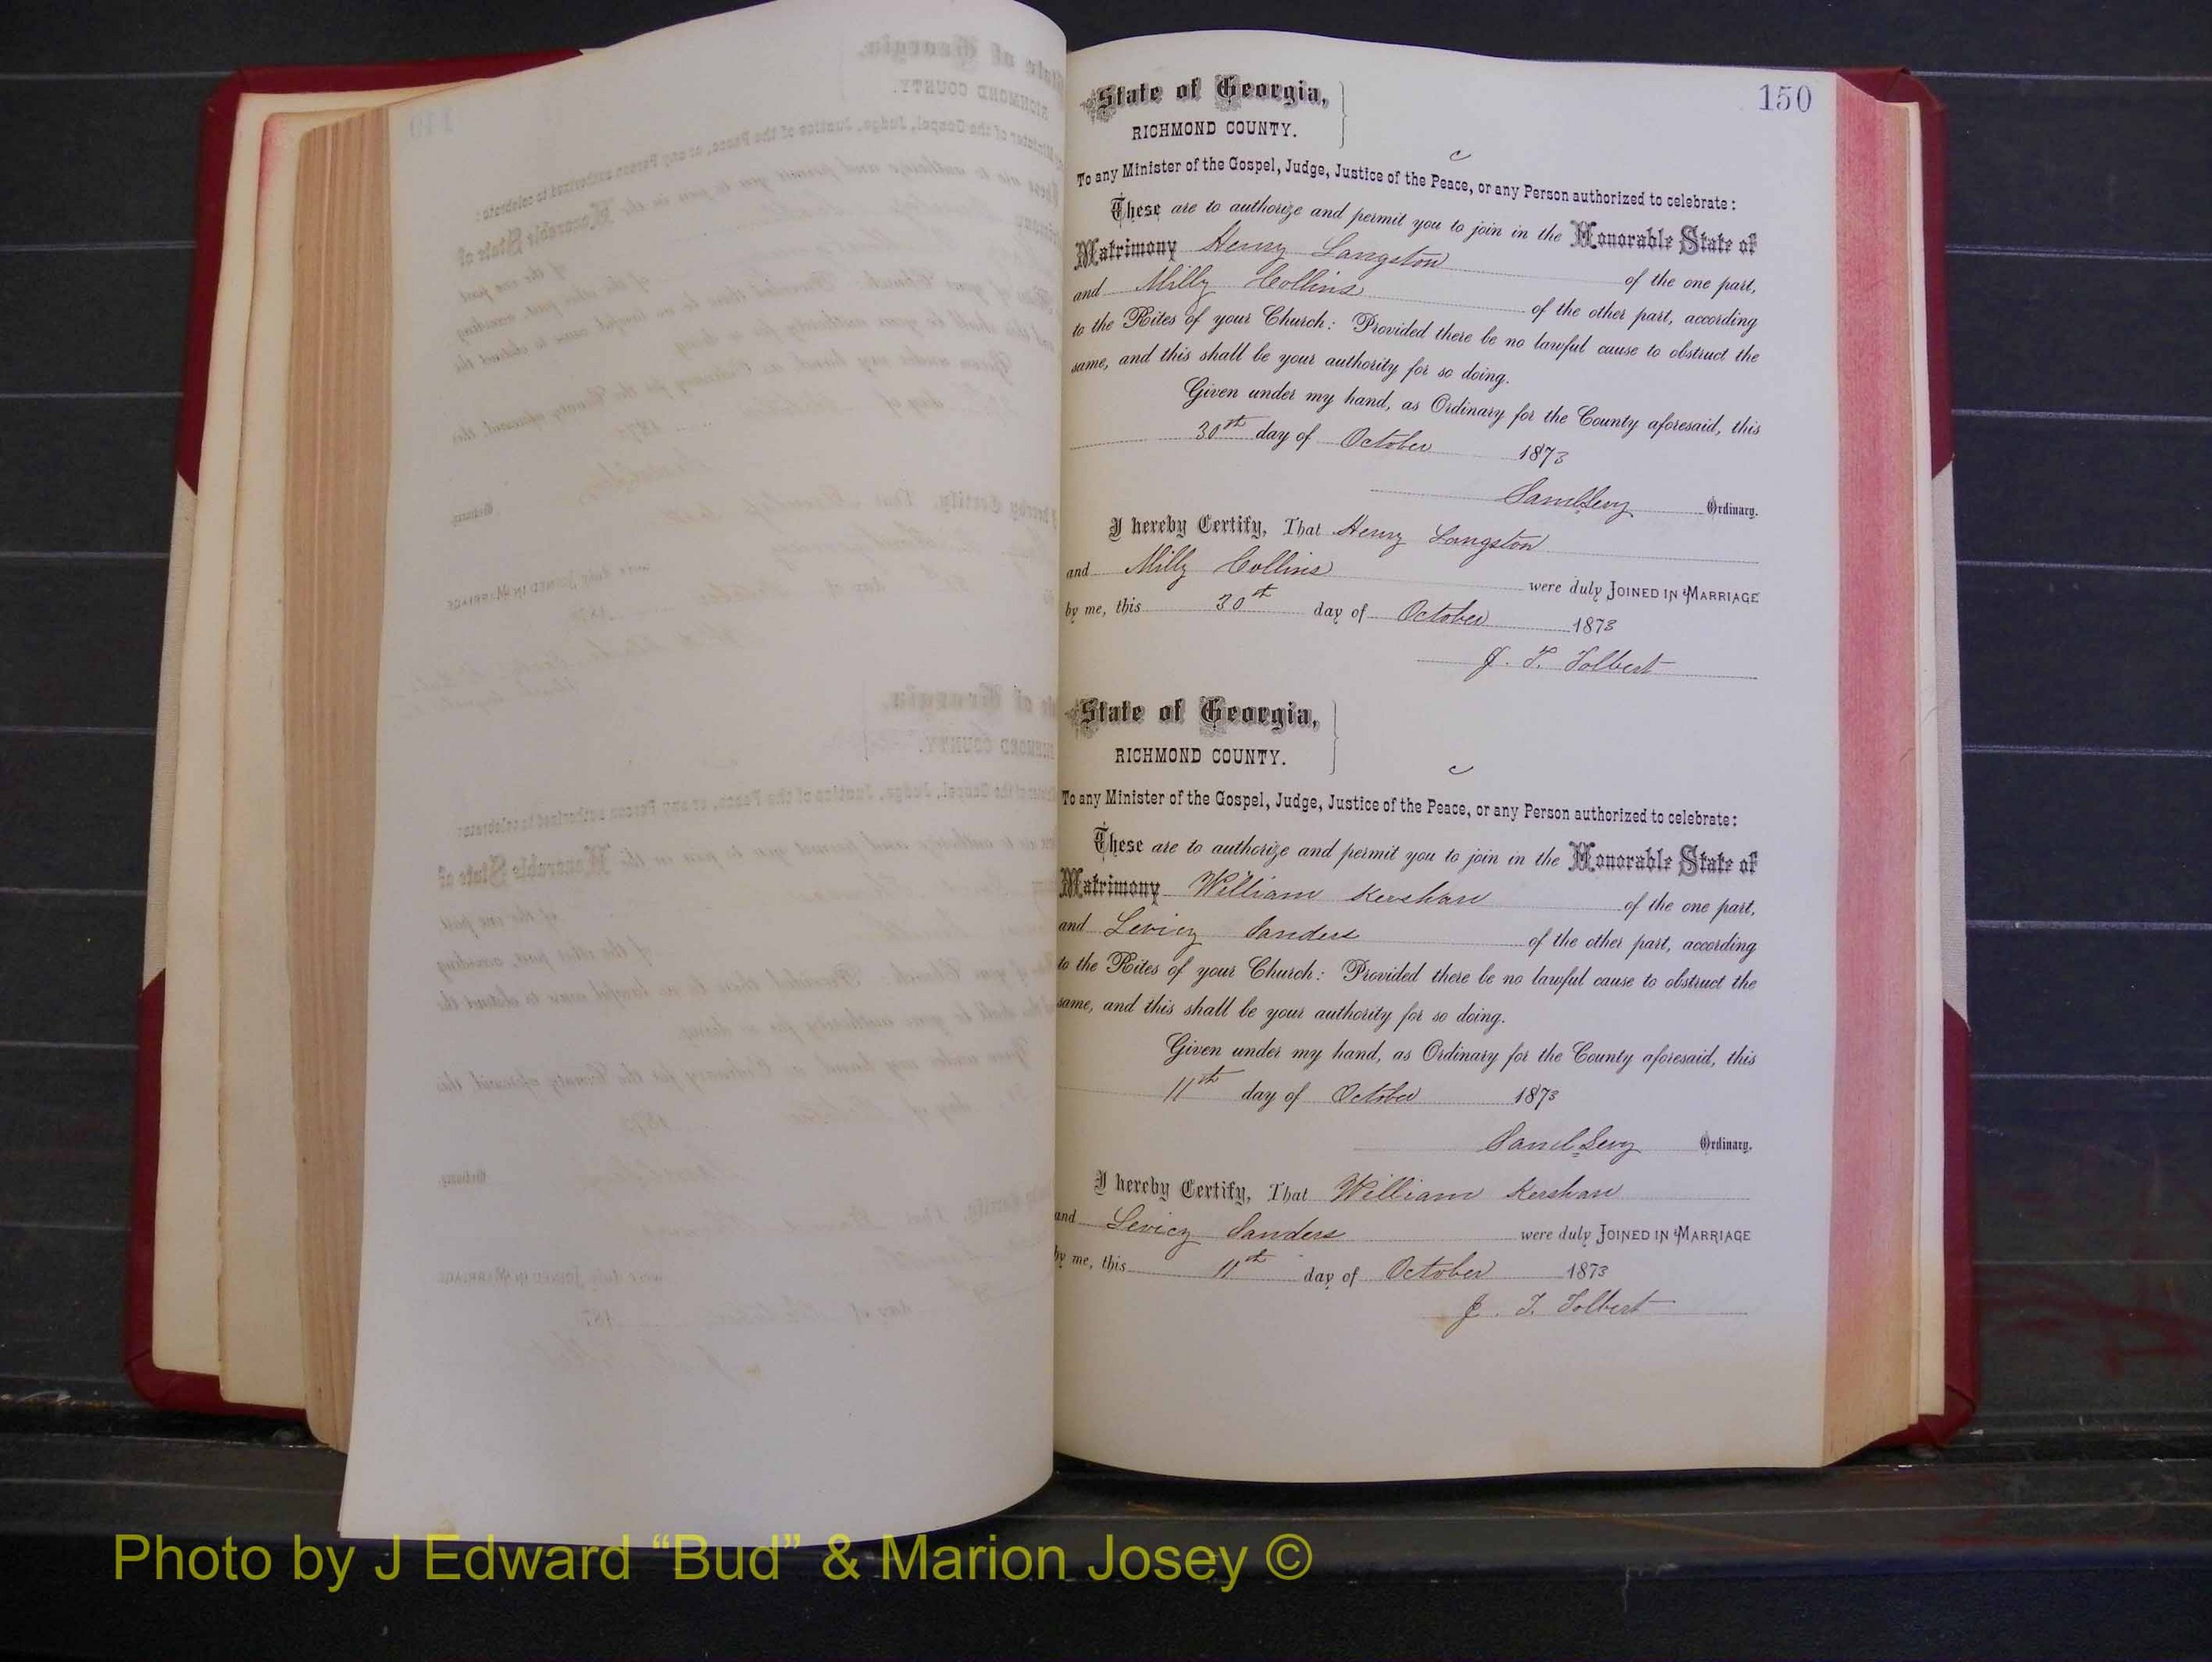 150
State of Georgia,
RICHMOND COUNTY.
c
To any Minister of the Gospel, Judge, Justice of the Peace, or any Person authorized to celebrate:
These are to authorize and permit you to join in the Honorable State of
Matrimony Henry Langston of the one part,
and Milly Collins of the other part, according
to the Rites of your Church: Provided there be no lawful cause to obstruct the
same, and this shall be your authority for so doing.
Given under my hand, as Ordinary for the County aforesaid, this
30th day of October 1873
Saml Levy Ordinary.
I hereby Certify, That Henry Langston
and Milly Collins were duly JOINED IN MARRIAGE
by me, this 30th day of October 1873
J. T. Tolbert
State of Georgia,
RICHMOND COUNTY.
c
To any Minister of the Gospel, Judge, Justice of the Peace, or any Person authorized to celebrate:
These are to authorize and permit you to join in the Honorable State of
Matrimony William Kershaw of the one part,
and Levicy Sanders of the other part, according
to the Rites of your Church: Provided there be no lawful cause to obstruct the
same, and this shall be your authority for so doing.
Given under my hand, as Ordinary for the County aforesaid, this
11th day of October 1873
Saml Levy Ordinary.
I hereby Certify, That William Kershaw
and Levicy Sanders were duly JOINED IN MARRIAGE
by me, this 11th day of October 1873
J. T. Tolbert
Photo by J Edward “Bud” & Marion Josey ©